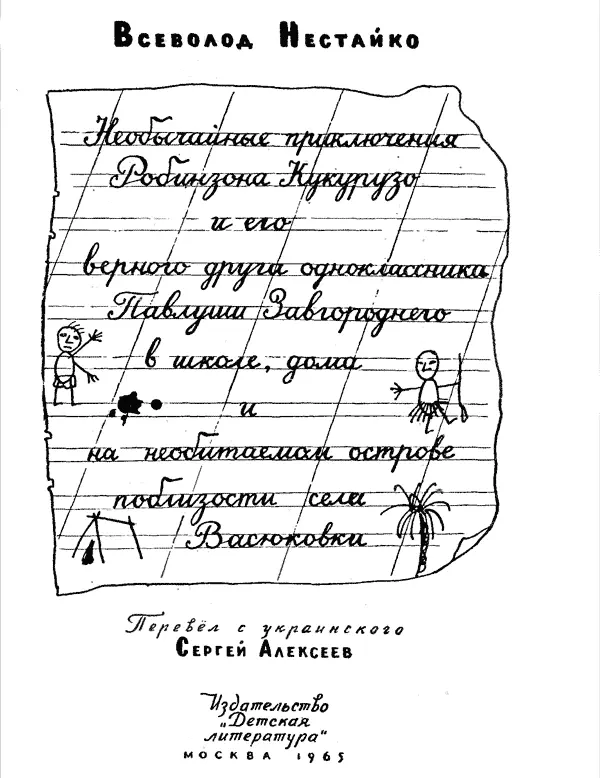 Всеволод Нестайко
Необычайные приключения
Робинзона Кукурузо
и его
верного друга одноклассника
Павлуши Завгороднего
в школе, дома
и
на необитаемом острове
поблизости села
Васюковки
Перевёл с украинского
Сергей Алексеев
Издательство
„Детская
литература“
МОСКВА 1965